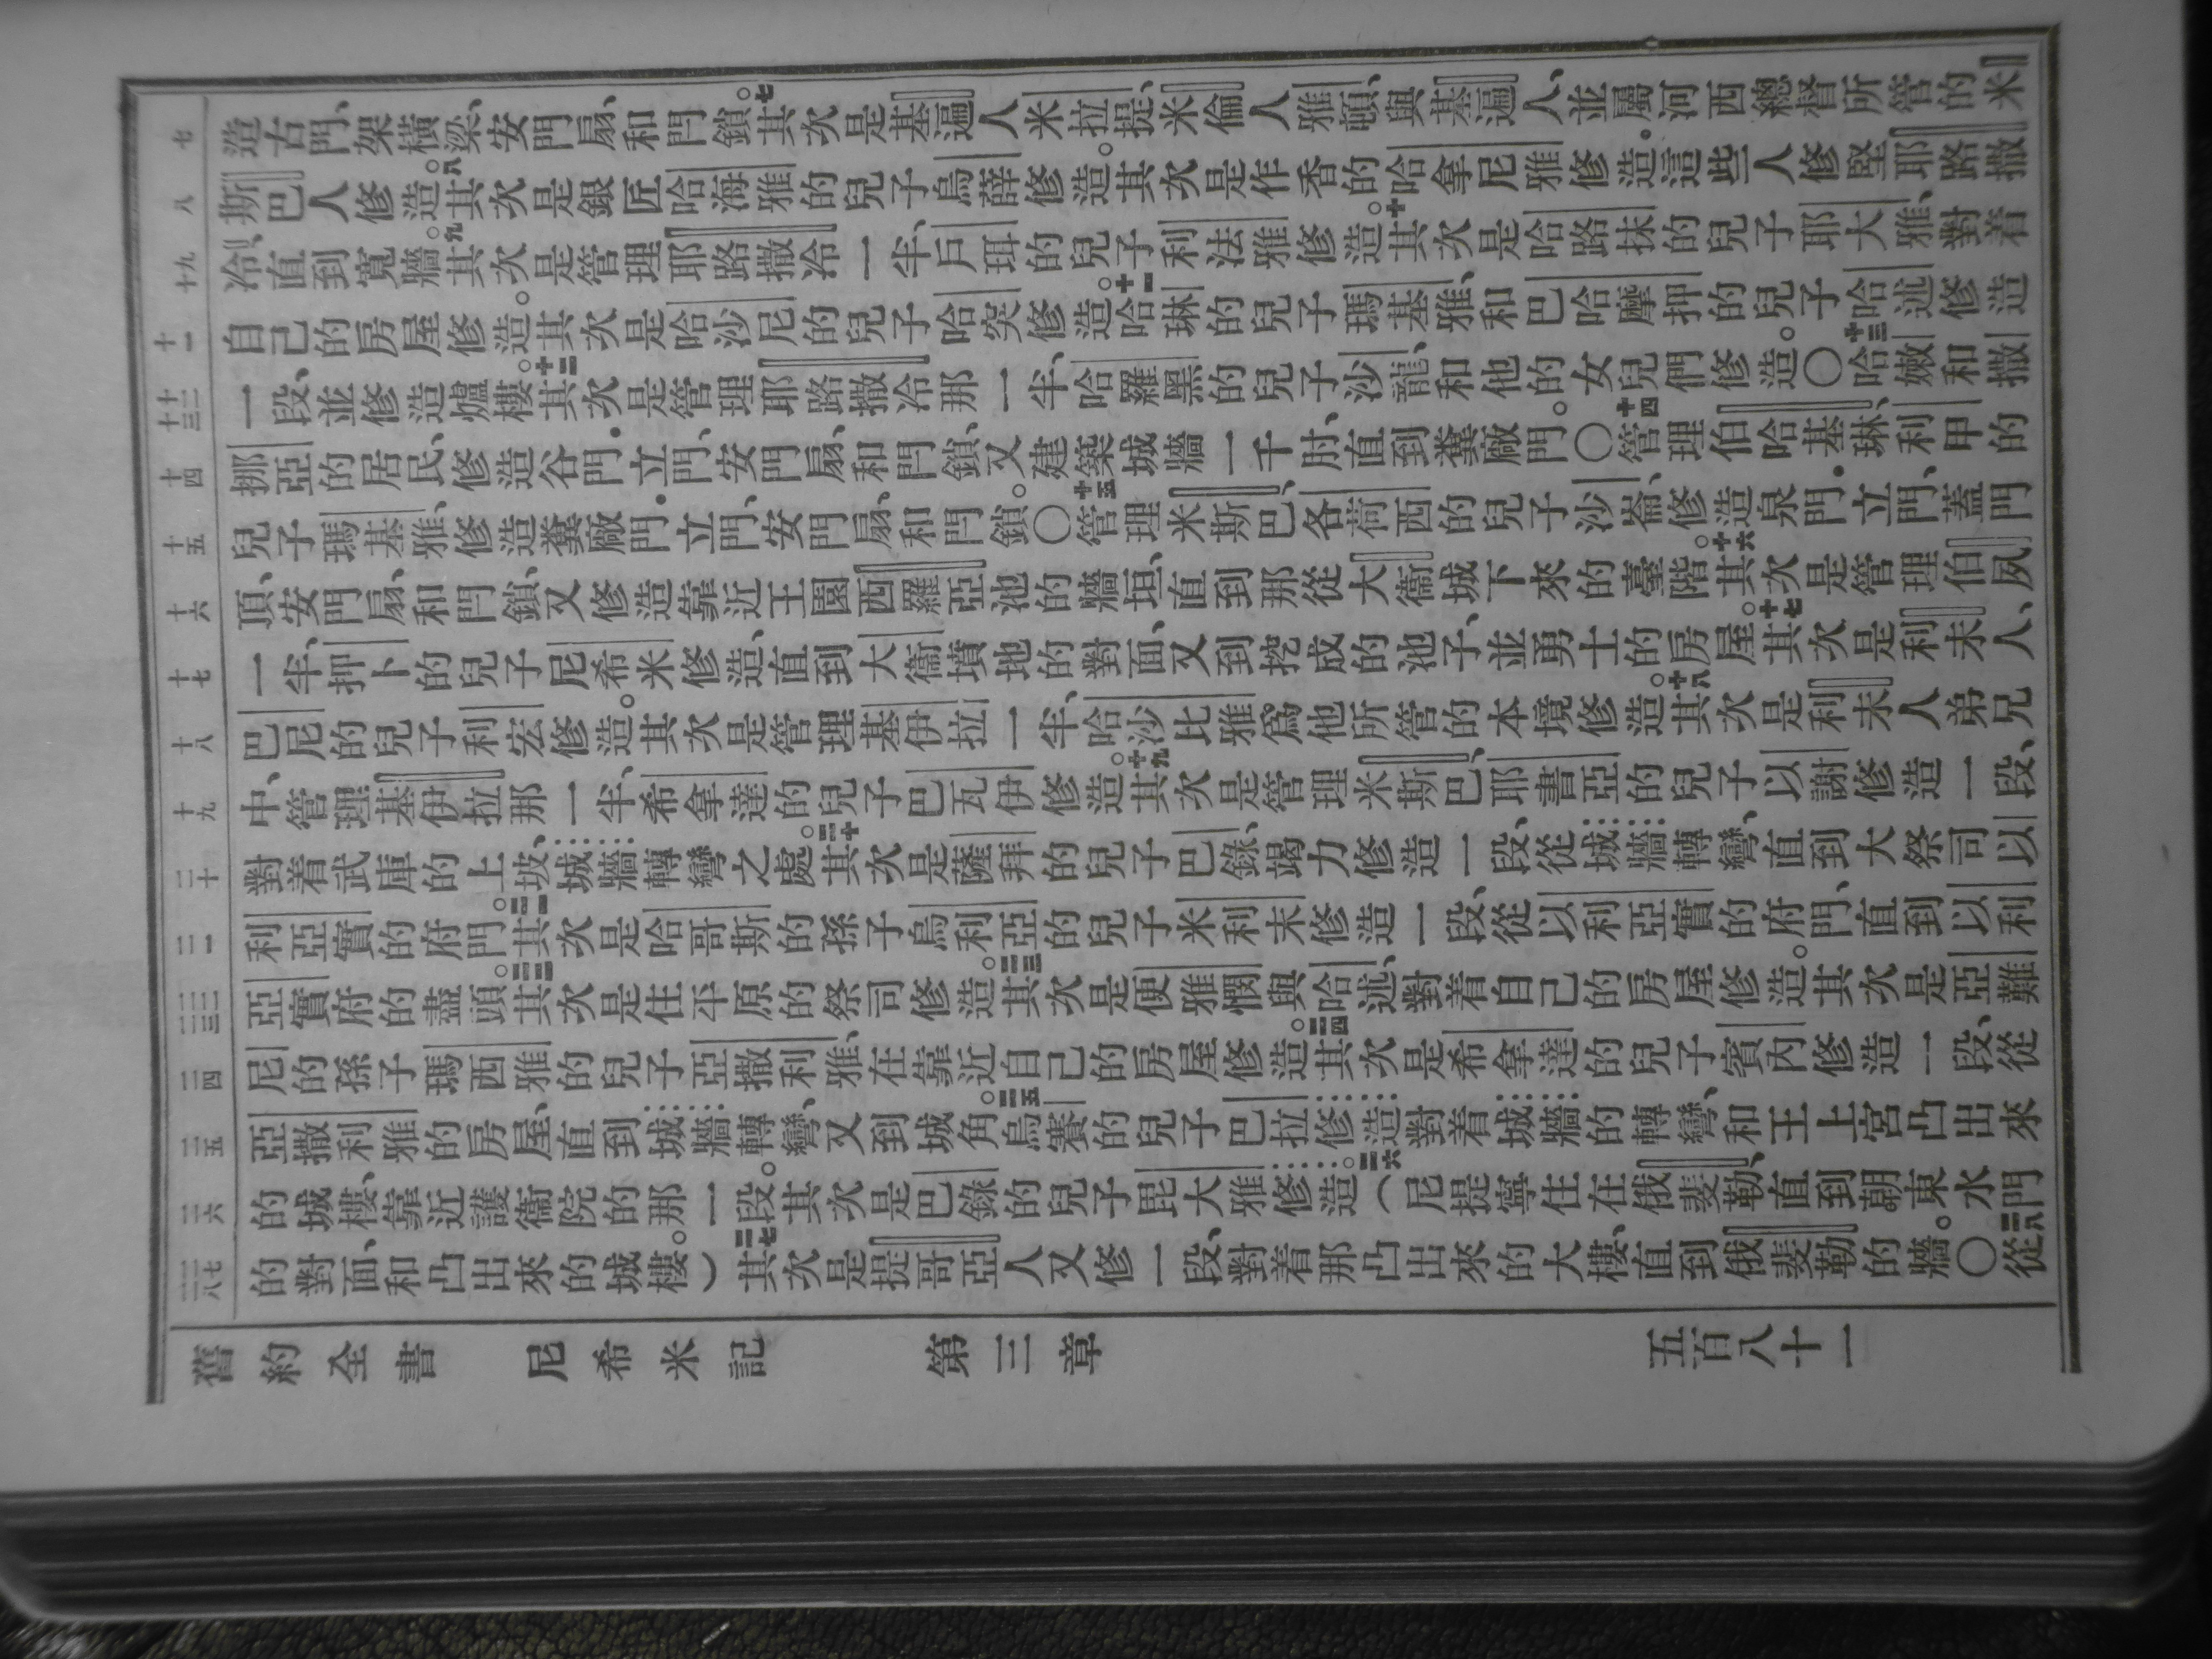 七 造古門、架橫梁、安門扇、和閂鎖。七其次是基遍人米拉提、米倫人雅頓、與基遍人、並屬河西總督所管的米
八 斯巴人修造。八其次是銀匠哈海雅的兒子烏薛修造。其次是作香的哈拿尼雅修造．這些人修堅耶路撒
十九 冷、直到寬牆。九其次是管理耶路撒冷一半、戶珥的兒子利法雅修造。十其次是哈路抹的兒子耶大雅、對着
十一 自己的房屋修造。其次是哈沙尼的兒子哈突修造。十一哈琳的兒子瑪基雅、和巴哈摩押的兒子哈述修造
十二十三 一段、並修造爐樓。十二其次是管理耶路撒冷那一半、哈羅黑的兒子沙龍、和他的女兒們修造。〇十三哈嫩和撒
十四 挪亞的居民、修造谷門．立門、安門扇、和閂鎖、又建築城牆一千肘、直到糞廠門。〇十四管理伯哈基琳、利甲的
十五 兒子瑪基雅、修造糞廠門．立門、安門扇、和閂鎖。〇十五管理米斯巴、各荷西的兒子沙崙、修造泉門．立門、蓋門
十六 頂、安門扇、和閂鎖、又修造靠近王園西羅亞池的牆垣、直到那從大衞城下來的臺階。十六其次是管理伯夙
十七 一半、押卜的兒子尼希米修造、直到大衞墳地的對面、又到挖成的池子、並勇士的房屋。十七其次是利未人、
十八 巴尼的兒子利宏修造。其次是管理基伊拉一半、哈沙比雅爲他所管的本境修造。十八其次是利未人弟兄
十九 中、管理基伊拉那一半、希拿達的兒子巴瓦伊修造。十九其次是管理米斯巴、耶書亞的兒子以謝修造一段、
二十 對着武庫的上坡、城牆轉彎之處。二十其次是薩拜的兒子巴錄、竭力修造一段、從城牆轉彎、直到大祭司以
二一 利亞實的府門。二一其次是哈哥斯的孫子烏利亞的兒子米利末修造一段、從以利亞實的府門、直到以利
二二二三 亞實府的盡頭。二二其次是住平原的祭司修造。二三其次是便雅憫與哈述、對着自己的房屋修造。其次是亞難
二四 尼的孫子瑪西雅的兒子亞撒利雅、在靠近自己的房屋修造。二四其次是希拿達的兒子賓內修造一段、從
二五 亞撒利雅的房屋、直到城牆轉彎、又到城角。二五烏賽的兒子巴拉修造對着城牆的轉彎、和王上宮凸出來
二六 的城樓、靠近護衞院的那一段。其次是巴錄的兒子毘大雅修造。二六（尼提寧住在俄斐勒、直到朝東水門
二七二八 的對面、和凸出來的城樓。）二七其次是提哥亞人又修一段、對着那凸出來的大樓、直到俄斐勒的牆。〇二八從
舊約全書　尼希米記　第三章　五百八十一